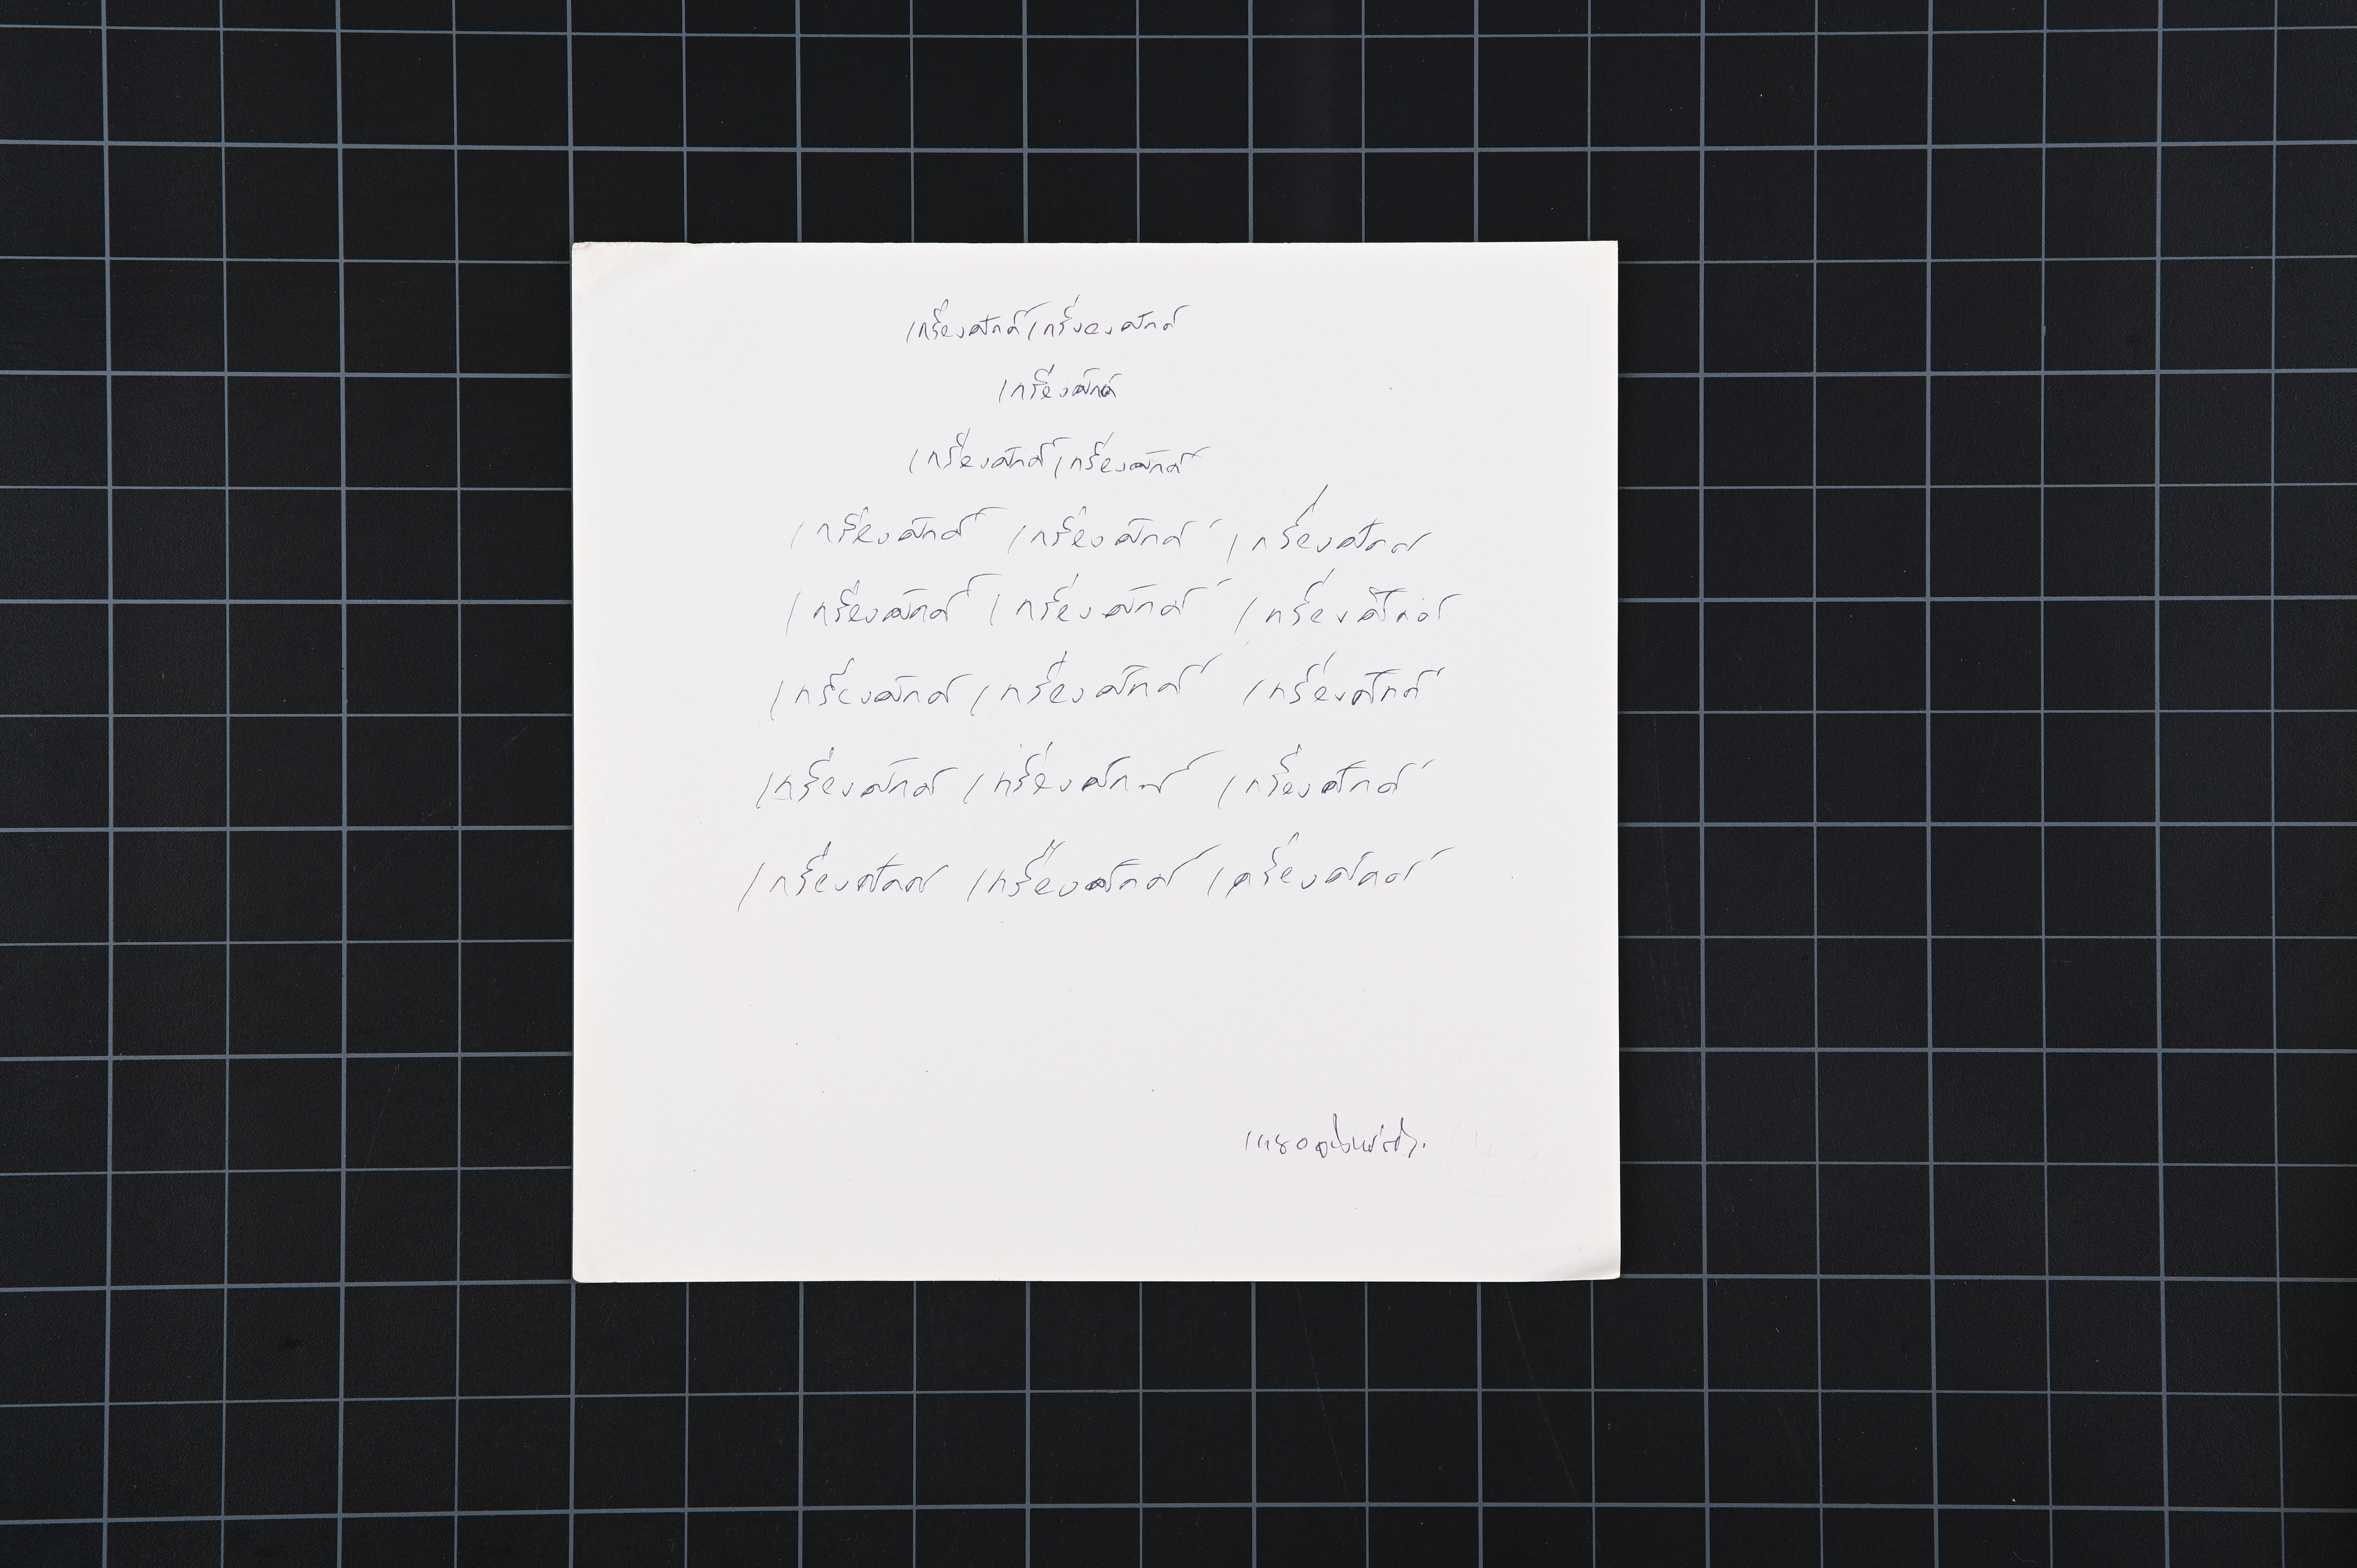 เกรียงศักดิ์ เกรียงศักดิ์
เกรียงศักดิ์
เกรียงศักดิ์ เกรียงศักดิ์
เกรียงศักดิ์ เกรียงศักดิ์ เกรียงศักดิ์
เกรียงศักดิ์ เกรียงศักดิ์ เกรียงศักดิ์
เกรียงศักดิ์ เกรียงศักดิ์ เกรียงศักดิ์
เกรียงศักดิ์ เกรียงศักดิ์ เกรียงศักดิ์
เกรียงศักดิ์ เกรียงศักดิ์ เกรียงศักดิ์